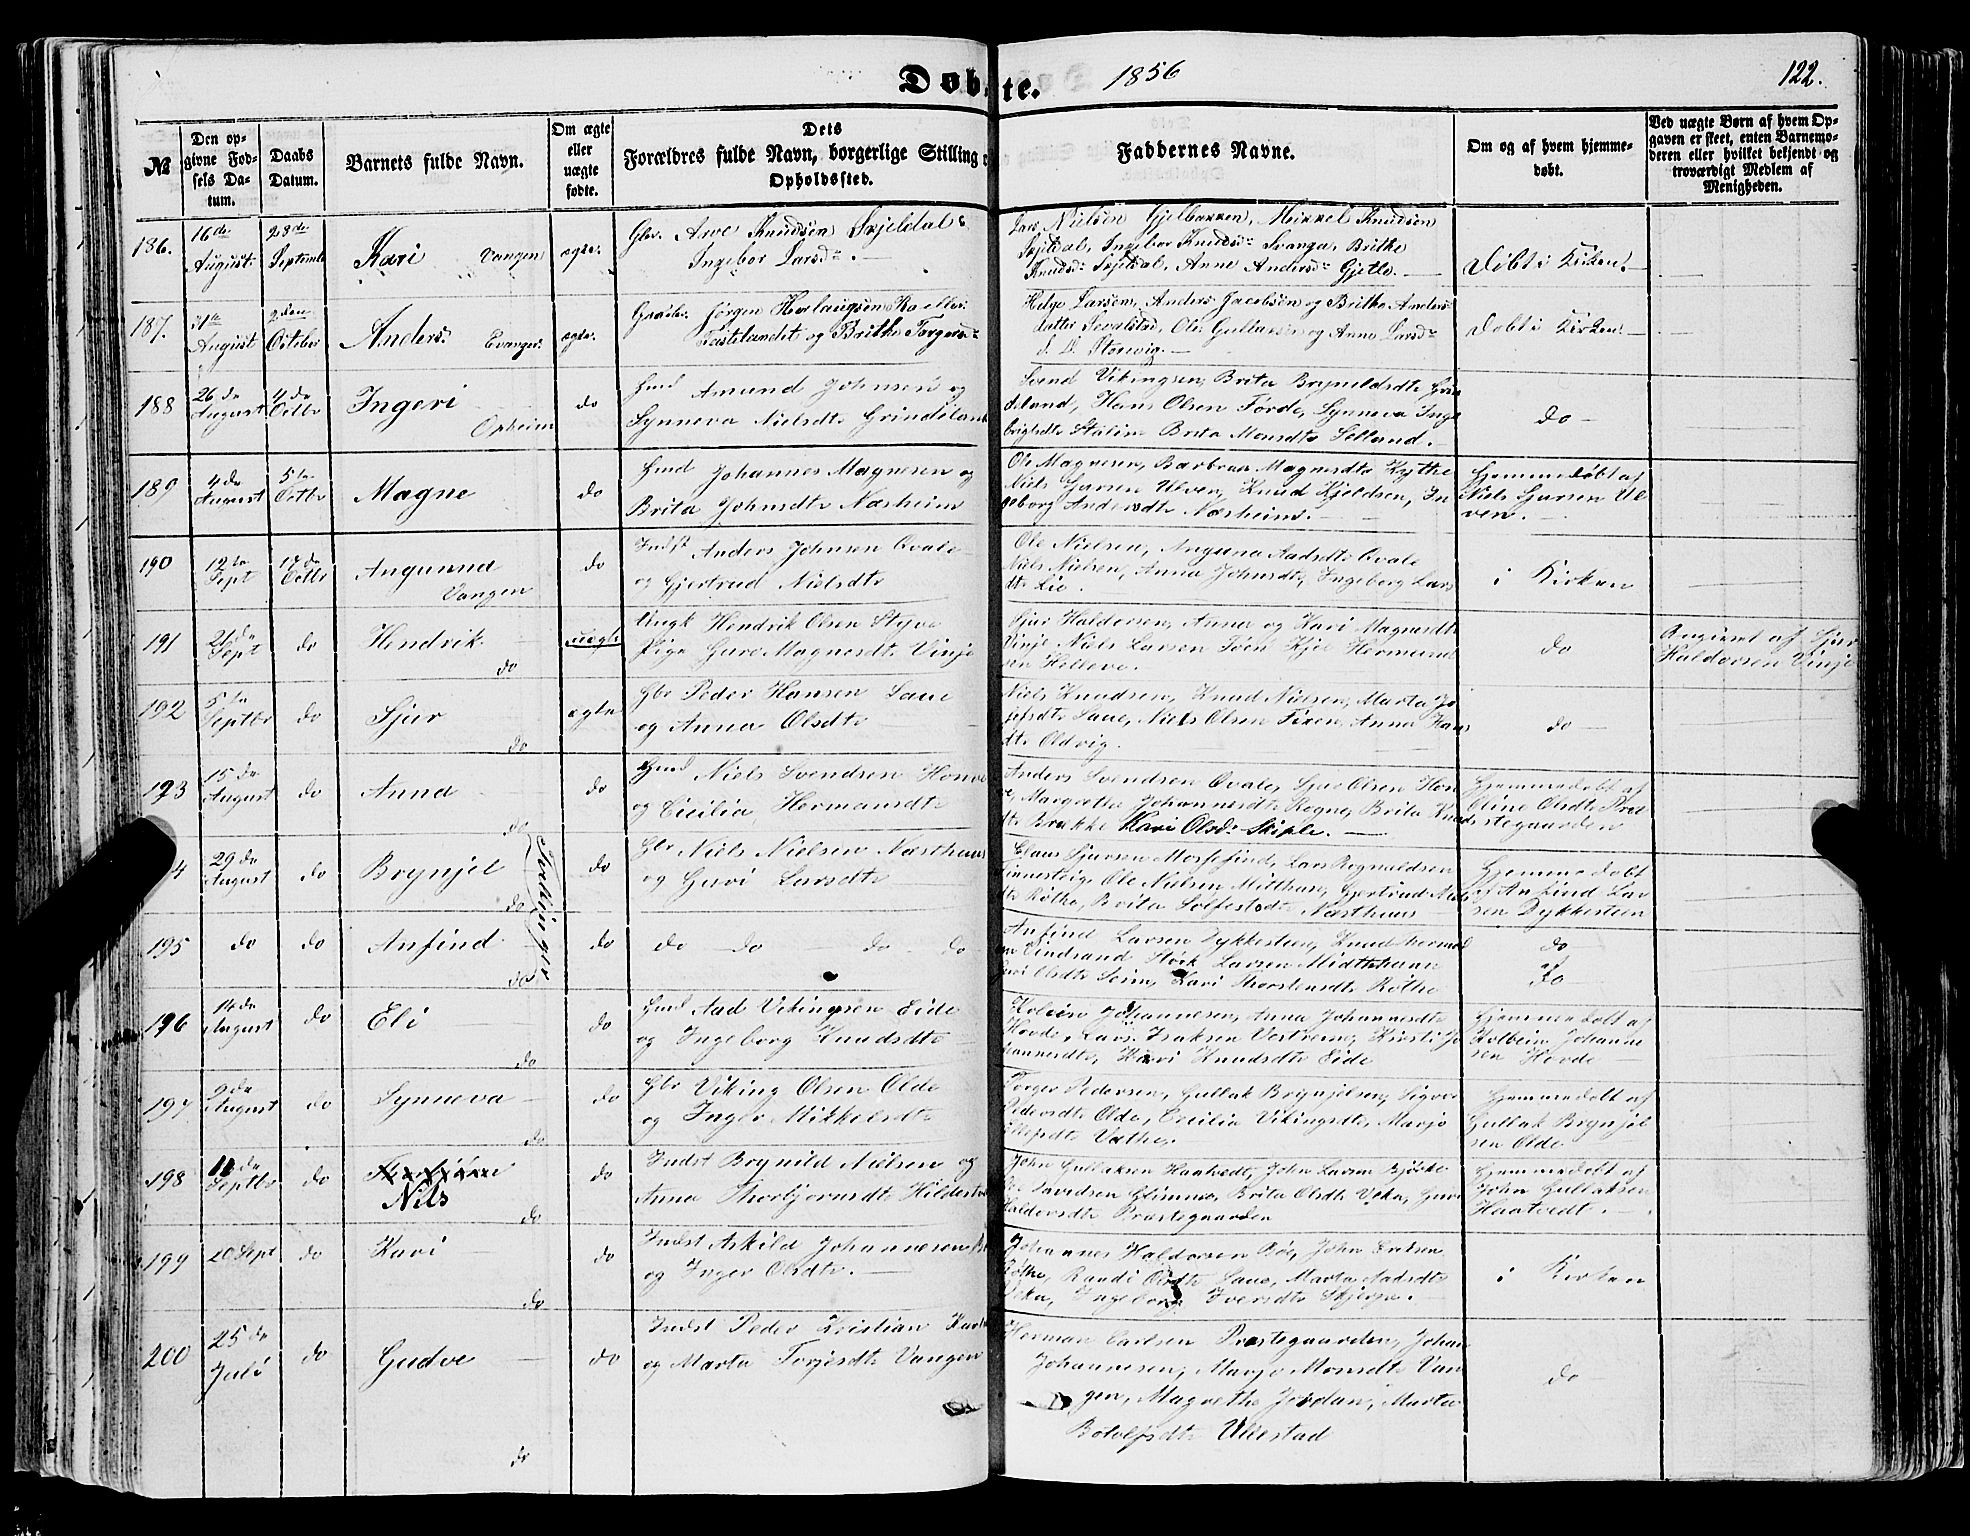 Døbte. 1856 122.
№
Den opgivne Fødsels Datum.
Daabs Datum.
Barnets fulde Navn.
Om ægte eller uægte fødte.
Dets Forældres fulde Navn, borgerlige Stilling Opholdssted.
Faddernes Navne.
Om og af hvem hjemmedøbt.
Ved uægte Børn af hvem Opgaven er skeet, enten Barnemoderen eller hvilket bekjendt og troværdigt Medlem af Menigheden.
186. 16de August 28de Septembr Kari Vangen ægte.
Arve Knudsen Skjeldal &
Ingebor Larsd.
Lars Nielsen Gjelbakken, Mikkel Knudsen
Skjeldal, Ingebor Knudsd. Svanga, Brithe
Knudsd. Skjeldal, Anne Andersd. Gjetle.
Døbt i Kirken.
187. August 2den October Anders Evanger ægte.
Jørgen
og Brithe Torgers
Helge Larsen, Anders Jacobsen og Brithe Anders
datter og Anna Larsd.
Døbt i Kirken.
188 26de August 4de Octbr Ingeri Opheim do
Hmd Amund Johnsen og
Synneva Nielsdtr Grindeland
Svend Vikingsen, Brita Brynildsdtr Grin
deland, Hans Olsen Førde, Synneva Inge
brigtsdtr Stalim Brita Monsdtr Selland.
do
189 4de August 5te Octbr Magne do
Hmd Johannes Magnesen og
Brita Johnsdtr Næsheim
Ole Magnesen, Barbraa Magnesdtr Kythe
Niels Gjursen Ulven, Knud Kjeldsen, In
geborg Andersdtr Næsheim.
Hjemmedøbt af
Niels Gjursen Ul
ven.
190 12te Sept 17de Octbr Angunna Vangen do
Indst Anders Johnsen Qvale
og Gjertrud Nielsdtr
Ole Nielsen, Anguna Aadsdtr Qvale
Niels Nielsen, Anna Johnsdtr, Ingeborg Lars
dtr Lie.
i Kirken
191 21de Sept do Hendrik do uægte
Ungk Hendrik Olsen Styve
Pige Guro Magnesdtr Vinje
Sjur Haldorsen, Anna og Kari Magnesdtr
Vinje Niels Larsen Tøen Kjel Hermund
sen Helleve.
do
Angivet af Sjur
Haldorsen Vinje
192 5te Septbr do Sjur do ægte
Gbr Peder Hansen Saue
og Anna Olsdtr
Niels Knudsen, Knud Nielsen, Marta Jo
sefsdtr Saue, Niels Olsen Finne, Anna Hans
dtr Oldvig.
do
193 15de August do Anna do do
Hmd Niels Svendsen Honve
og Cicilia Hermansdtr
Anders Svendsen Qvale, Sjur Olsen Hon
ve, Margrethe Johannesdtr Rogne, Brita Knuds
dtr Brække Kari Olsd: Skiple.
Hjemmedøbt af
Oline Olsdtr Præ
stegaarden
4 29de August do Brynjel do do
Tvillinger
Gbr Niels Nielsen Næsthuus
og Guri Larsdtr
Claus Sjursen Mossefind, Lars Rognaldsen
Ole Nielsen Midthun, Gjertrud Niels
dtr Røthe, Brita Solfestsdtr Næsthuus
Hjemmedøbt
af Anfind Lar
sen Dykkesteen
195 do do Anfind do do
do do do do
Anfind Larsen Dykkesteen, Knud
Størk Larsen Midthuun
Olsdtr Seim, Kari Thorstensdtr Røthe
do
af
do
196 14de August do Eli do do
Hmd Aad Vikingsen Eide
og Ingeborg Knudsdtr
Kolbein Johannesen, Anna Johannesdtr
Hovde, Lars Isaksen Vestrem, Kirsti Jo
hannesdtr, Kari Knudsdtr Eide
Hjemmedøbt af
Kolbein Johanne
sen Hovde
197 9de August do Synneva do do
Gbr Viking Olsen Olde
og Inger Mikkelsdtr
Torger Pedersen, Gullak Brynjelsen, Sigvor
Pedersdtr Olde, Cecilia Vikingsdtr, Marjo
Ellefsdtr Væthe.
Hjemmedøbt af
Gullak Brynjel
sen Olde
198 11de Septbr do Nils do do
Indst Brynild Nielsen og
Anna Thorbjørnsdtr Hildestv
John Gullaksen Haatvedt, John Larsen Bjørke
Davidsen Glimme, Brita Olsdtr Veka, Guro
Haldorsdtr Præstegaarden
Hjemmedøbt af
John Gullaksen
Haatvedt.
199 20 Sept do Kari do do
Indst Askild Johannesen
og Inger Olsdtr.
Johannes Haldorsen Bø, John
Røthe, Randi Olsdtr Saue, Marta Aadsdtr
Veka, Ingeborg Iversdtr Skjerpe.
i Kirken
200 25de Juli do Gudve do do
Indst Peder Kristian
og Marta Torjesdtr Vangen
Herman Carlsen Præstegaarden, Johan
Johannesen, Marjo Monsdtr Van
gen, Magrethe Jordan, Marta
Botolfsdtr Ullestad
do